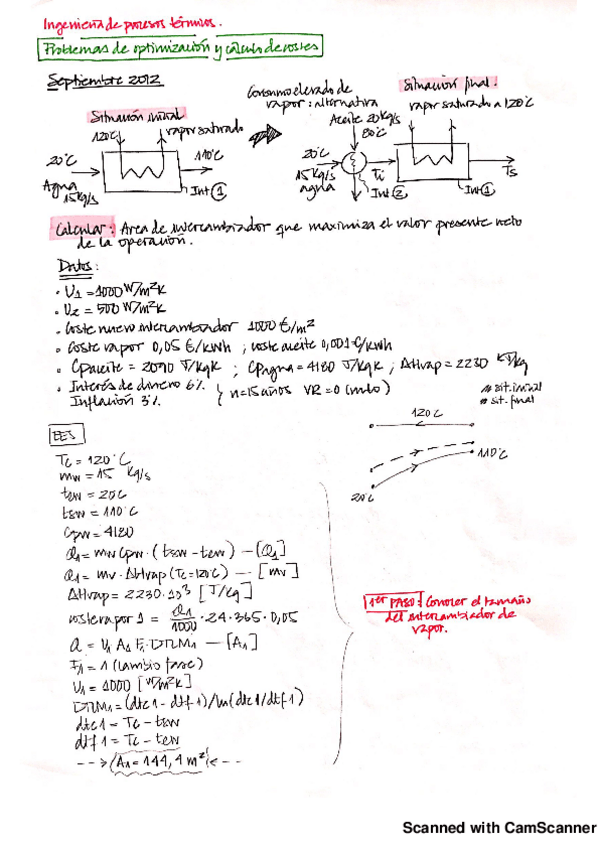 Ingeniería de procesos térmicos.
Problemas de optimización y cálculo de costes
Septiembre 2012
Situación inicial
120°C
vapor saturado
20°C
110°C
Agua
15kg/s
Int ①
Consumo elevado de
vapor: alternativa
Aceite 20kg/s
80°C
20°C
15kg/s
agua
Ti
Int ②
Situación final:
vapor saturado a 120°C
Ts
Int ①
Calcular: Area de intercambiador que maximiza el valor presente neto
de la operación.
Datos:
· U1 = 1000 W/m²K
· U2 = 500 W/m²K
· Coste nuevo intercambiador 1000 €/m²
· Coste vapor 0,05 €/kWh ; coste aceite 0,001 €/kWh
· Cpaceite = 2090 J/kgK ; Cpagua = 4180 J/kgK ; ΔHvap = 2230 kJ/kg
· Interés de dinero 6%
Inflación 3%
} n=15 años VR=0 (nulo)
// sit. inicial
// sit. final
120°C
110°C
20°C
EES
Tc = 120°C
mw = 15 kg/s
tew = 20°C
tsw = 110°C
Cpw = 4180
Q1 = mw Cpw · (tsw - tew) — [Q1]
Q1 = mv · ΔHvap (Tc=120°C) — [mv]
ΔHvap = 2230·10³ [J/kg]
costevapor 1 = Q1/1000 · 24·365·0,05
Q = U1 A1 F1 DTLM1 — [A1]
F1 = 1 (cambio fase)
U1 = 1000 [W/m²K]
DTLM1 = (dtc1 - dtf1)/ln(dtc1/dtf1)
dtc1 = Tc - tsw
dtf1 = Tc - tew
--> (A1 = 144,4 m²) <--
1er PASO: Conocer el tamaño
del intercambiador de
vapor.
Scanned with CamScanner